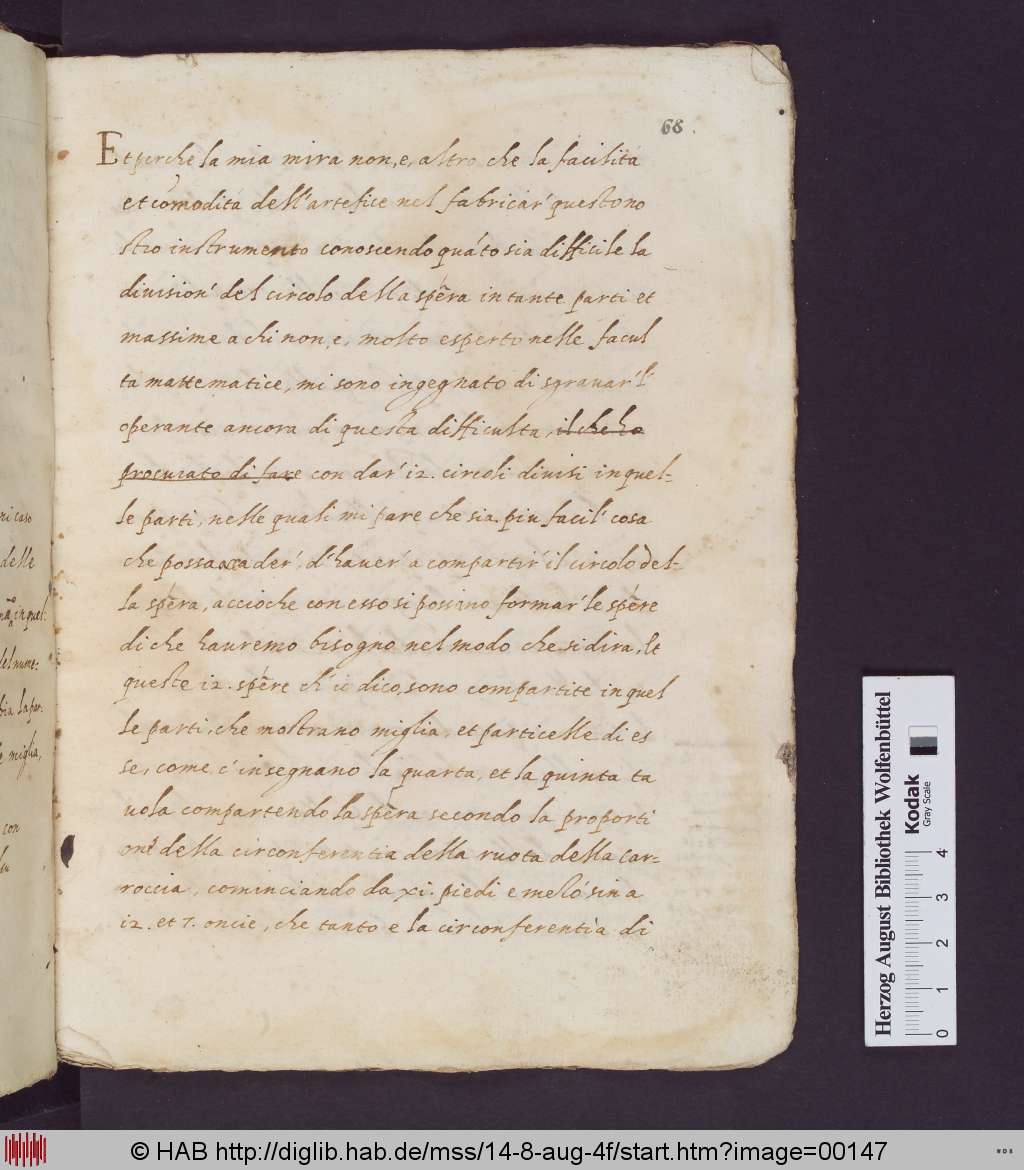 68
Et perche la mia mira non, e, altro che la facilità
et comodità dell'artefice nel fabricar' questo no
stro instrumento conoscendo quáto sia difficile la
division' del circolo della spéra in tante parti et
massime a chi non, e, molto esperto nelle facul
ta mattematice, mi sono ingegnato di sgravar' l'
operante ancora di questa difficulta, il che ho
procurato di fare con dar' 12. circoli divisi in quel-
le parti, nelle quali mi pare che sia piu facil' cosa
che possa accader', d'haver' a compartir' il circolo del-
la spéra, accioche con esso si possino formar' le spére
di che hauremo bisogno nel modo che si dira, Et
queste 12. spére ch' io dico, sono compartite in quel
le parti, che mostrano miglia, et particelle di es
se, come c' insegnano la quarta, et la quinta ta
uola compartendo la spéra secondo la proporti
one della circonferentia della ruota della Car-
roccia, cominciando da xi. piedi e mezo sin a
12. et 7. oncie, che tanto e la circonferentia di
ri caso
delle
in quel
del nume:
bia la par.
e miglia,
con
Herzog August Bibliothek Wolfenbüttel
Kodak
Gray Scale
0 1 2 3 4
© HAB http://diglib.hab.de/mss/14-8-aug-4f/start.htm?image=00147